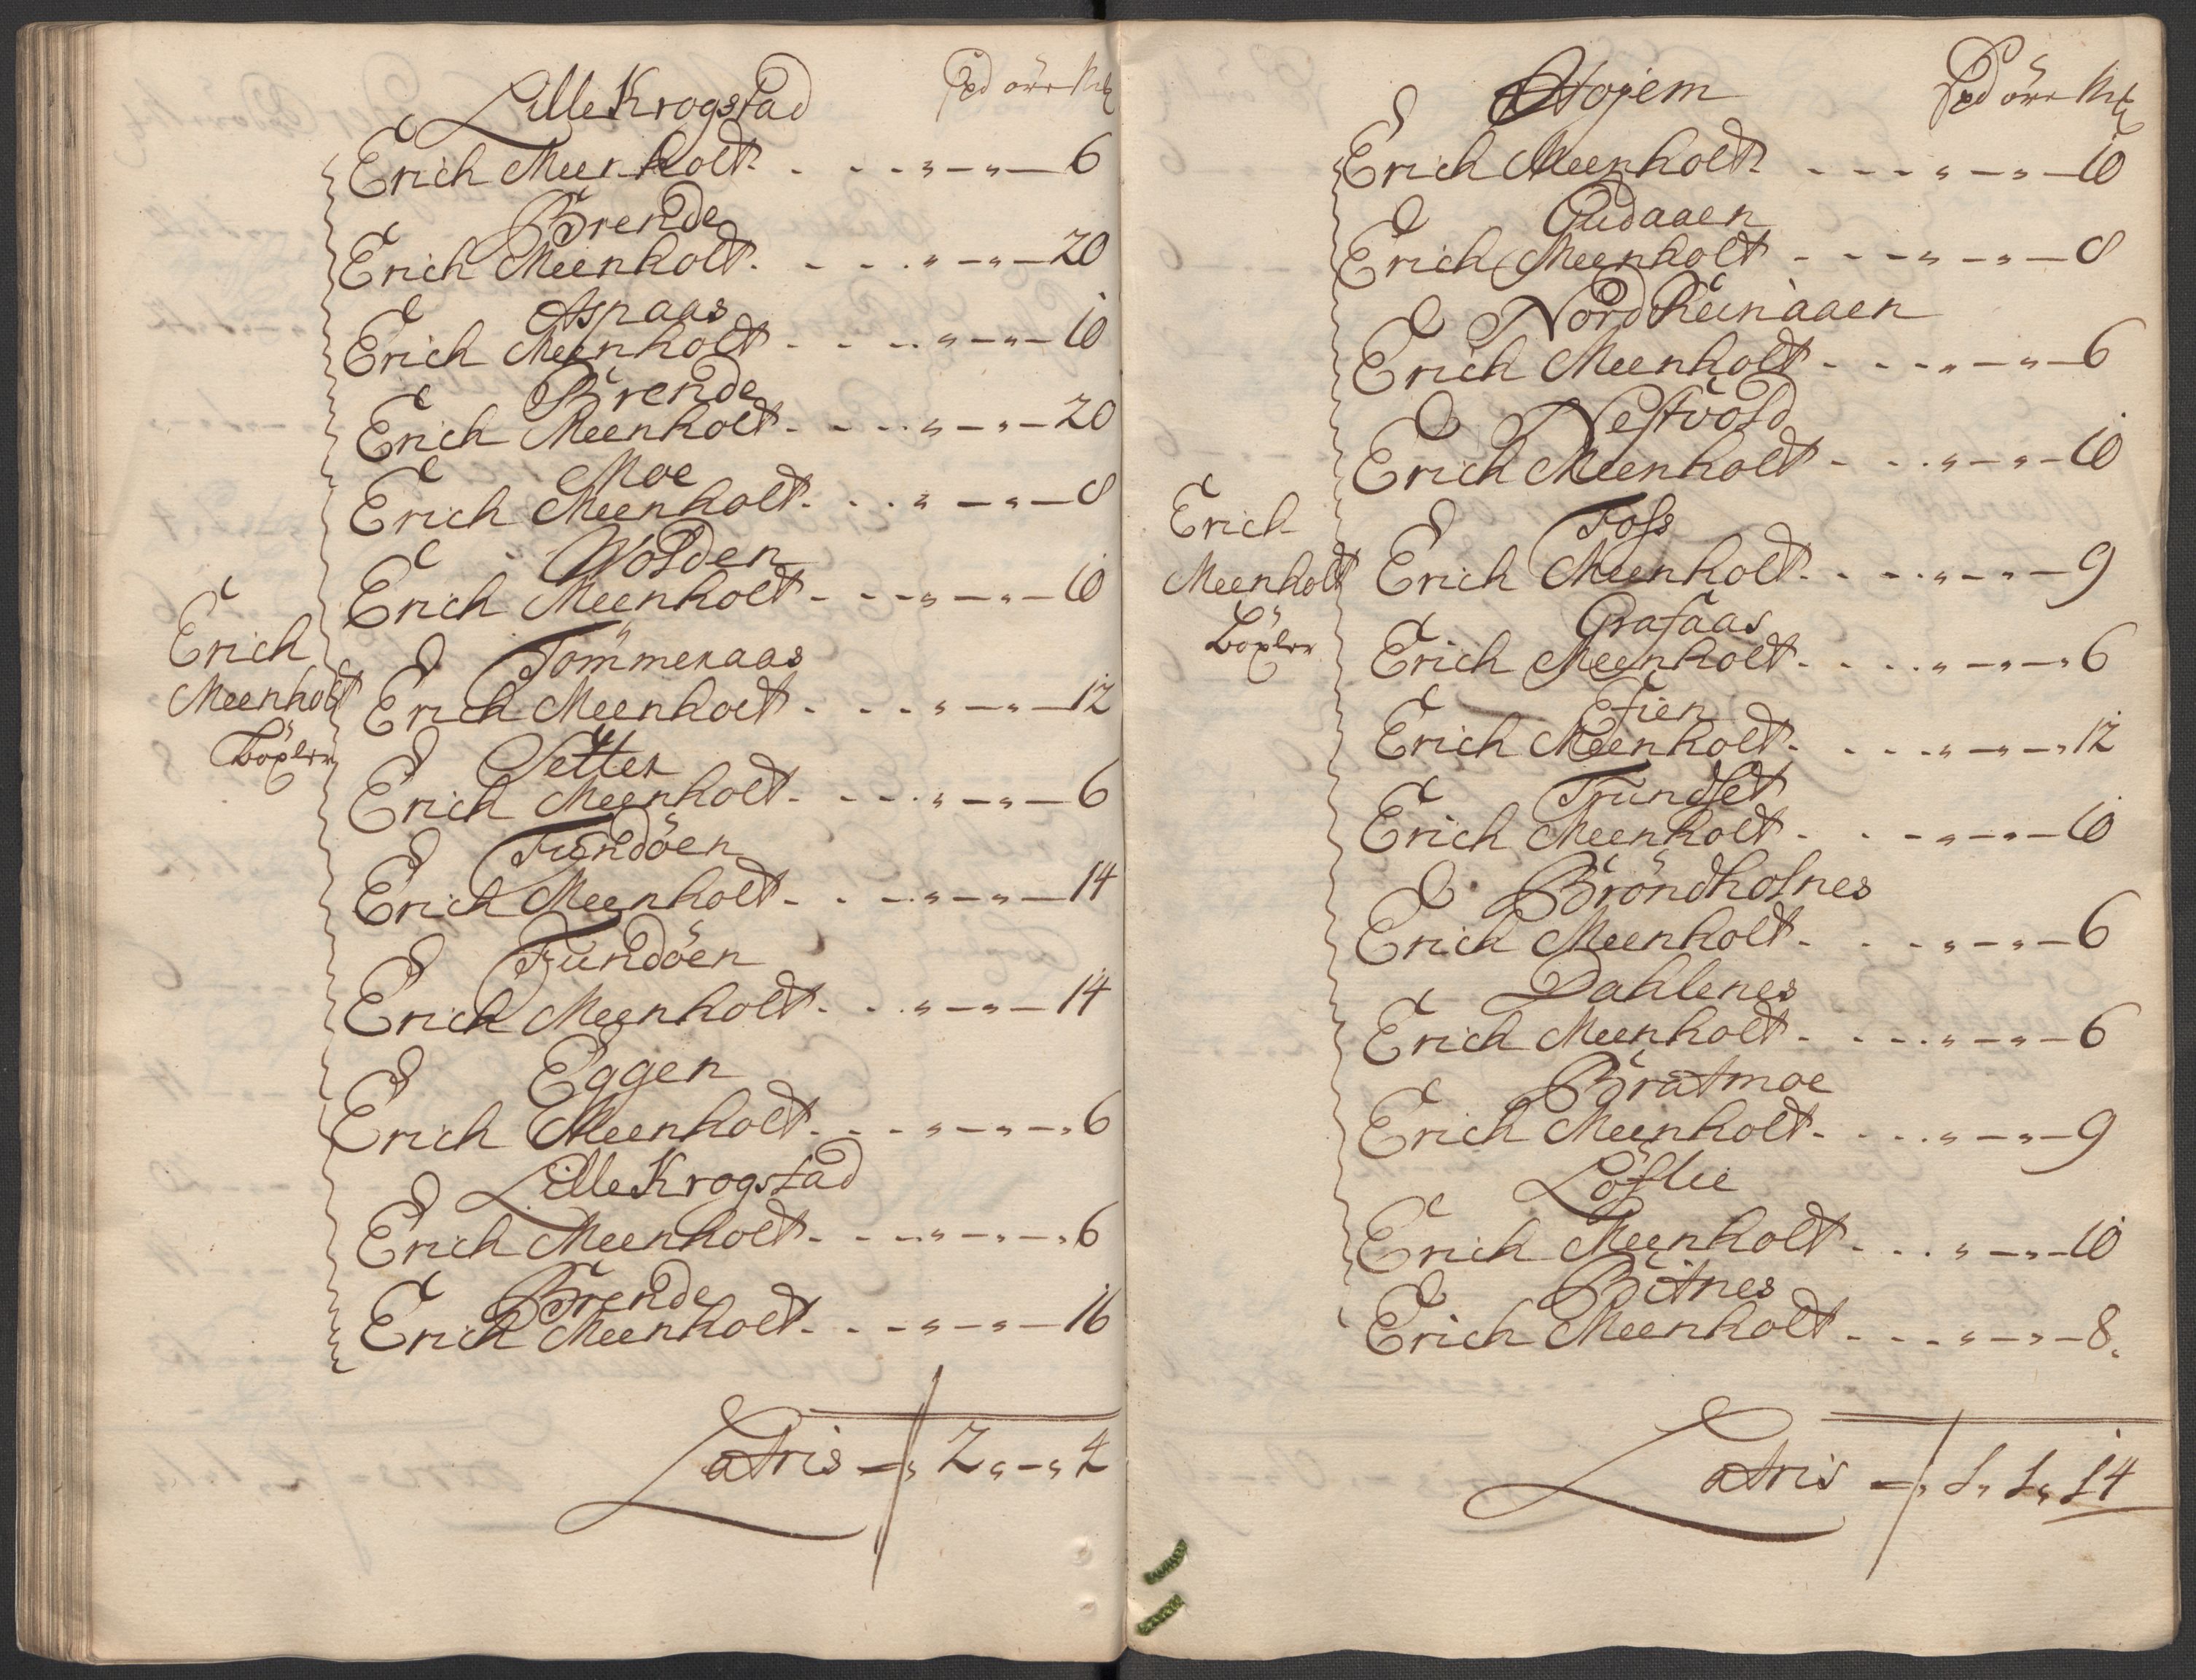 Lille Krogstad Spd örr Mk
Erich Meenholt - - - „ - „ - 6
Brende
Erich Meenholt - - - „ - „ - 20
Aspaas
Erich Meenholt - - - „ - „ - 10
Brende
Erich Meenholt - - - „ - „ - 20
Moe
Erich Meenholt - - - „ - „ - 8
Wolden
Erich Meenholt - - - „ - „ - 10
Tömmeraas
Erich Meenholt - - - „ - „ - 12
Setter
Erich Meenholt - - - „ - „ - 6
Fundöen
Erich Meenholt - - - „ - „ - 14
Fundöen
Erich Meenholt - - - „ - „ - 14
Eggen
Erich Meenholt - - - „ - „ - 6
Lille Krogstad
Erich Meenholt - - - „ - „ - 6
Brende
Erich Meenholt - - - „ - „ - 16
Erich
Meenholt
Böxler
Latris - „ 2 „ - „ 4
Hojem Spd örr Mk
Erich Meenholt - - - „ - „ - 10
Gudaaen
Erich Meenholt - - - „ - „ - 8
Nord Reinaaen
Erich Meenholt - - - „ - „ - 6
Nestvold
Erich Meenholt - - - „ - „ - 10
Foss
Erich Meenholt - - - „ - „ - 9
Grafaas
Erich Meenholt - - - „ - „ - 6
Fien
Erich Meenholt - - - „ - „ - 12
Trundset
Erich Meenholt - - - „ - „ - 10
Bröndholnes
Erich Meenholt - - - „ - „ - 6
Dahlenes
Erich Meenholt - - - „ - „ - 6
Bratmoe
Erich Meenholt - - - „ - „ - 9
Löflie
Erich Meenholt - - - „ - „ - 10
Bitnes
Erich Meenholt - - - „ - „ - 8
Erich
Meenholt
Böxler
Latris - „ 1 „ 1 „ 14